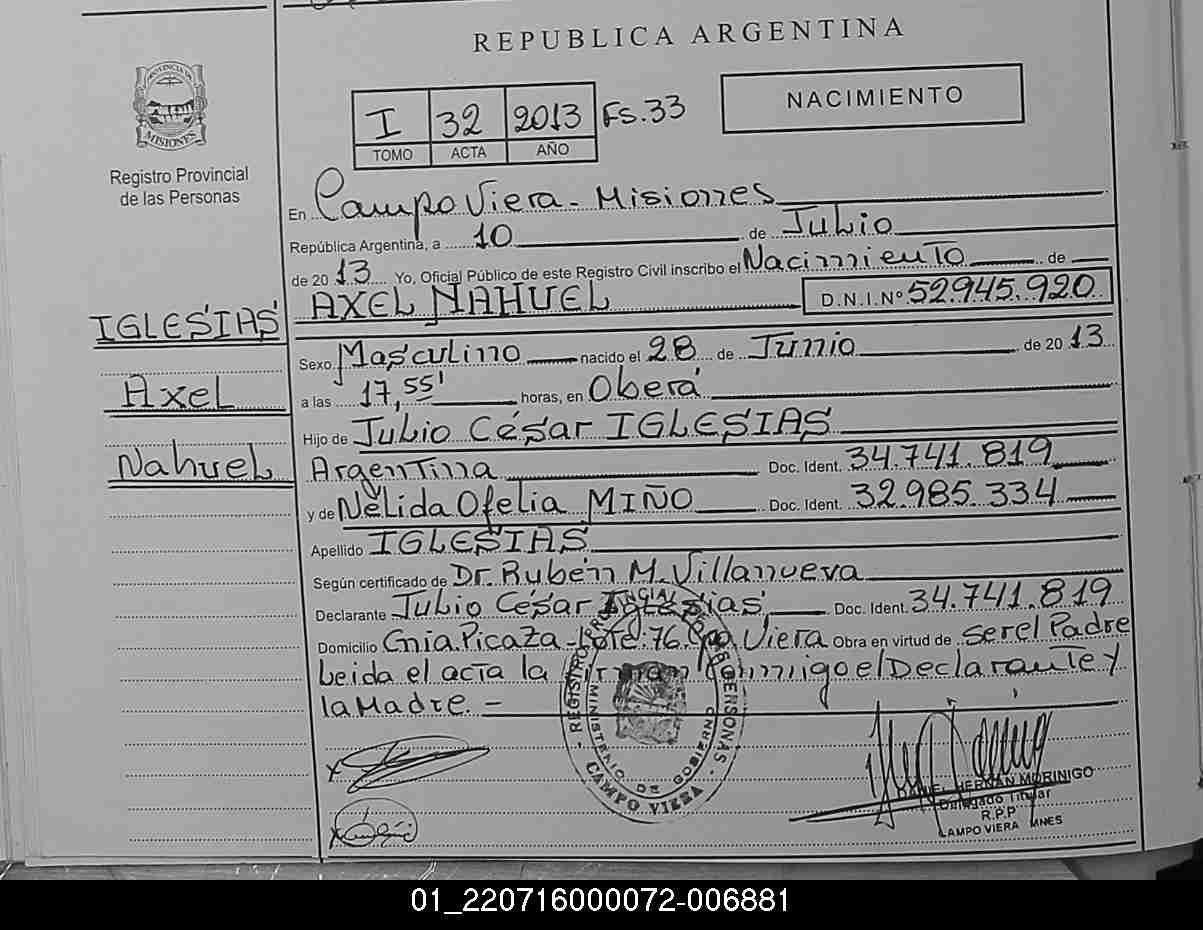 REPUBLICA ARGENTINA
PROVINCIA DE
MISIONES
Registro Provincial
de las Personas
I 32 2013 Fs. 33
TOMO ACTA AÑO
NACIMIENTO
En Campo Viera - Misiones
República Argentina, a 10 de Julio
de 2013 Yo, Oficial Público de este Registro Civil inscribo el Nacimiento de
AXEL NAHUEL D.N.I.Nº 52.945.920
IGLESIAS
Axel
Nahuel
Sexo Masculino nacido el 28 de Junio de 2013
a las 17,55' horas, en Oberá
Hijo de Julio César IGLESIAS
Argentina Doc. Ident. 34.741.819
y de Nélida Ofelia MIÑO Doc. Ident. 32.985.334
Apellido IGLESIAS
Según certificado de Dr. Rubén M. Villanueva
Declarante Julio César Iglesias Doc. Ident. 34.741.819
Domicilio Cnia. Picaza - Lote. 76. Cpo Viera Obra en virtud de ser el Padre
Leida el acta la firman conmigo el Declarante y
la Madre. -
REGISTRO PROVINCIAL DE LAS PERSONAS
MINISTERIO DE GOBIERNO
CAMPO VIERA
DANIEL HERNAN MORINIGO
Delegado Titular
R.P.P
CAMPO VIERA MNES
01_220716000072-006881